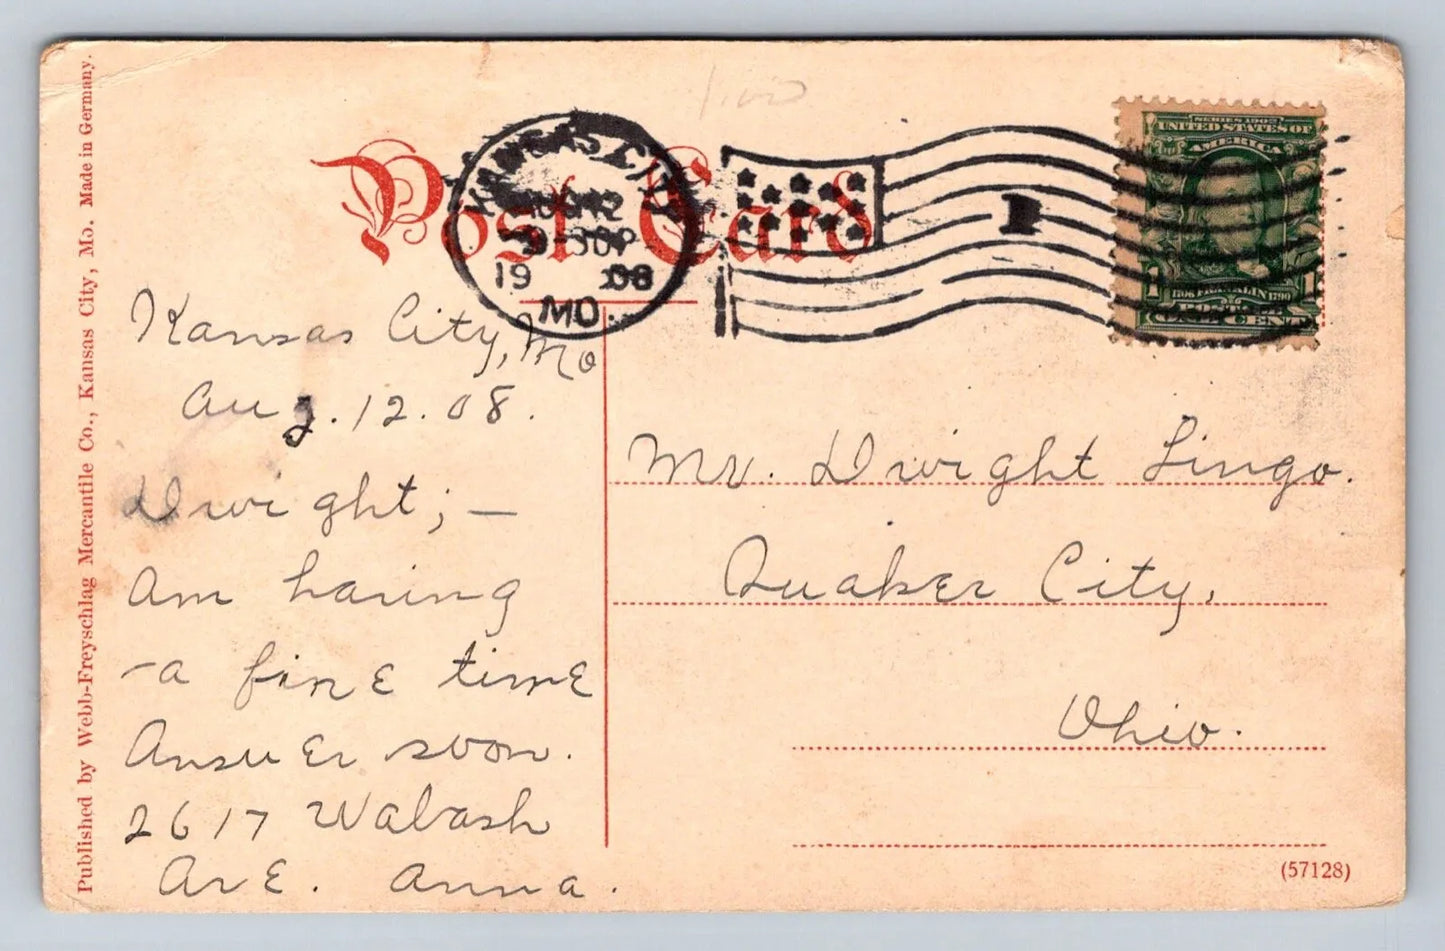 Published by Webb-Freyschlag Mercantile Co., Kansas City, Mo. Made in Germany.
Post Card
KANSAS CITY
12
19 08
MO.
SERIES 1902
UNITED STATES OF
AMERICA
1 1
1706 FRANKLIN 1790
CENT
Kansas City, Mo
Aug. 12. 08.
Dwight; —
Am having
a fine time
Answer soon.
2617 Wabash
Ave. Anna.
Mr. Dwight Lingo.
Quaker City,
Ohio.
(57128)